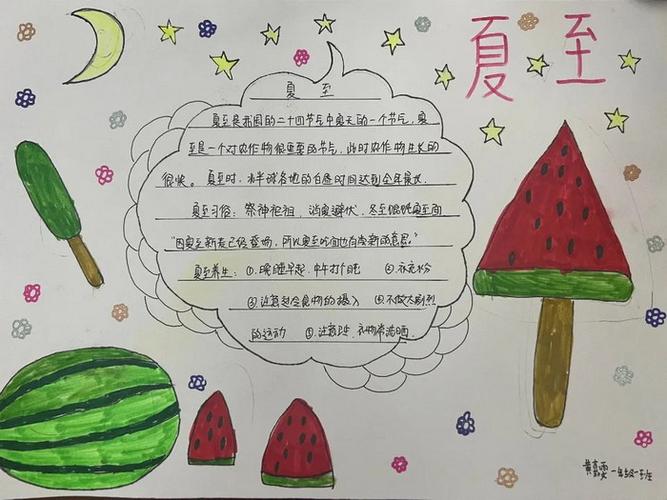 夏至
夏 至
夏至是我国的二十四节气中夏天的一个节气，夏
至是一个对农作物很重要的节气，此时农作物生长的
很快。夏至时，北半球各地的白昼时间达到全年最长.
夏至习俗：祭神祀祖，消夏避伏，冬至馄饨夏至面
"因夏至新麦已经登场，所以夏至吃面也有尝新的意思。"
夏至养生：①晚睡早起，中午打盹 ②补充水分
③注意 食物的摄入 ④不做太剧烈
的运动 ⑤注意卫生，衣物常洗晒.
黄 雯 一年级一班